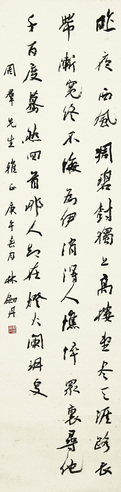 昨夜西風凋碧樹獨上高樓望盡天涯路衣
帶漸寬終不悔為伊消得人憔悴眾裏尋他
千百度驀然回首那人卻在燈火闌珊處
周群先生雅正庚午春月林劍丹